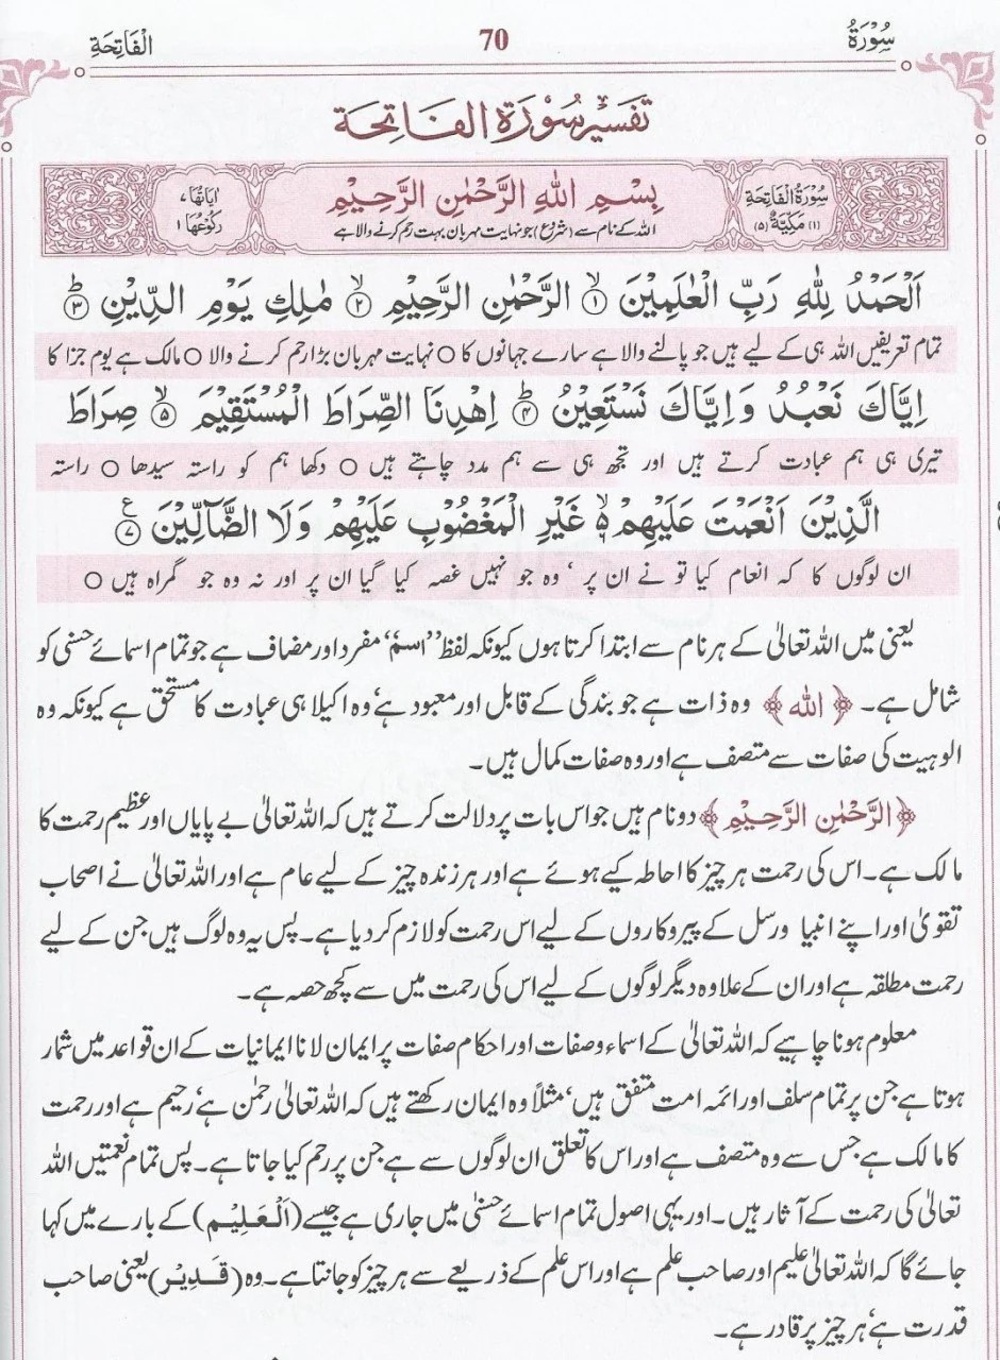 سُوْرَةُ 70 الْفَاتِحَةِ
تفسیر سُوْرَة الفَاتِحَة
سُوْرَةُ الْفَاتِحَةِ
(۱) مَكِّيَّةٌ (۵)
بِسْمِ اللّٰهِ الرَّحْمٰنِ الرَّحِيْمِ
اللہ کے نام سے (شروع) جو نہایت مہربان بہت رحم کرنے والا ہے
اٰيَاتُهَا ۷
رُكُوْعُهَا ۱
اَلْحَمْدُ لِلّٰهِ رَبِّ الْعٰلَمِيْنَ ۙ﴿۱﴾ الرَّحْمٰنِ الرَّحِيْمِ ۙ﴿۲﴾ مٰلِكِ يَوْمِ الدِّيْنِ ؕ﴿۳﴾
تمام تعریفیں اللہ ہی کے لیے ہیں جو پالنے والا ہے سارے جہانوں کا ○ نہایت مہربان بڑا رحم کرنے والا ○ مالک ہے یوم جزا کا
اِيَّاكَ نَعْبُدُ وَاِيَّاكَ نَسْتَعِيْنُ ؕ﴿۴﴾ اِهْدِنَا الصِّرَاطَ الْمُسْتَقِيْمَ ۙ﴿۵﴾ صِرَاطَ
تیری ہی ہم عبادت کرتے ہیں اور تجھ ہی سے ہم مدد چاہتے ہیں ○ دکھا ہم کو راستہ سیدھا ○ راستہ
الَّذِيْنَ اَنْعَمْتَ عَلَيْهِمْ ۙ۬ غَيْرِ الْمَغْضُوْبِ عَلَيْهِمْ وَلَا الضَّآلِّيْنَ ﴿۷﴾ ع
ان لوگوں کا کہ انعام کیا تو نے ان پر ، وہ جو نہیں غصہ کیا گیا ان پر اور نہ وہ جو گمراہ ہیں ○
یعنی میں اللہ تعالیٰ کے ہر نام سے ابتدا کرتا ہوں کیونکہ لفظ ’’اسم‘‘ مفرد اور مضاف ہے جو تمام اسمائے حسنیٰ کو
شامل ہے۔ ﴿اللّٰه﴾ وہ ذات ہے جو بندگی کے قابل اور معبود ہے، وہ اکیلا ہی عبادت کا مستحق ہے کیونکہ وہ
الوہیت کی صفات سے متصف ہے اور وہ صفات کمال ہیں۔
﴿الرَّحْمٰنِ الرَّحِيْمِ﴾ دو نام ہیں جو اس بات پر دلالت کرتے ہیں کہ اللہ تعالیٰ بے پایاں اور عظیم رحمت کا
مالک ہے۔ اس کی رحمت ہر چیز کا احاطہ کیے ہوئے ہے اور ہر زندہ چیز کے لیے عام ہے اور اللہ تعالیٰ نے اصحاب
تقویٰ اور اپنے انبیا ورسل کے پیروکاروں کے لیے اس رحمت کو لازم کر دیا ہے۔ پس یہ وہ لوگ ہیں جن کے لیے
رحمت مطلقہ ہے اور ان کے علاوہ دیگر لوگوں کے لیے اس کی رحمت میں سے کچھ حصہ ہے۔
معلوم ہونا چاہیے کہ اللہ تعالیٰ کے اسماء وصفات اور احکام صفات پر ایمان لانا ایمانیات کے ان قواعد میں شمار
ہوتا ہے جن پر تمام سلف اور ائمہ امت متفق ہیں، مثلاً وہ ایمان رکھتے ہیں کہ اللہ تعالیٰ رحمٰن ہے، رحیم ہے اور رحمت
کا مالک ہے جس سے وہ متصف ہے اور اس کا تعلق ان لوگوں سے ہے جن پر رحم کیا جاتا ہے۔ پس تمام نعمتیں اللہ
تعالیٰ کی رحمت کے آثار ہیں۔ اور یہی اصول تمام اسمائے حسنیٰ میں جاری ہے جیسے (اَلْعَلِيْم) کے بارے میں کہا
جائے گا کہ اللہ تعالیٰ علیم اور صاحب علم ہے اور اس علم کے ذریعے سے ہر چیز کو جانتا ہے۔ وہ (قَدِيْر) یعنی صاحب
قدرت ہے، ہر چیز پر قادر ہے۔